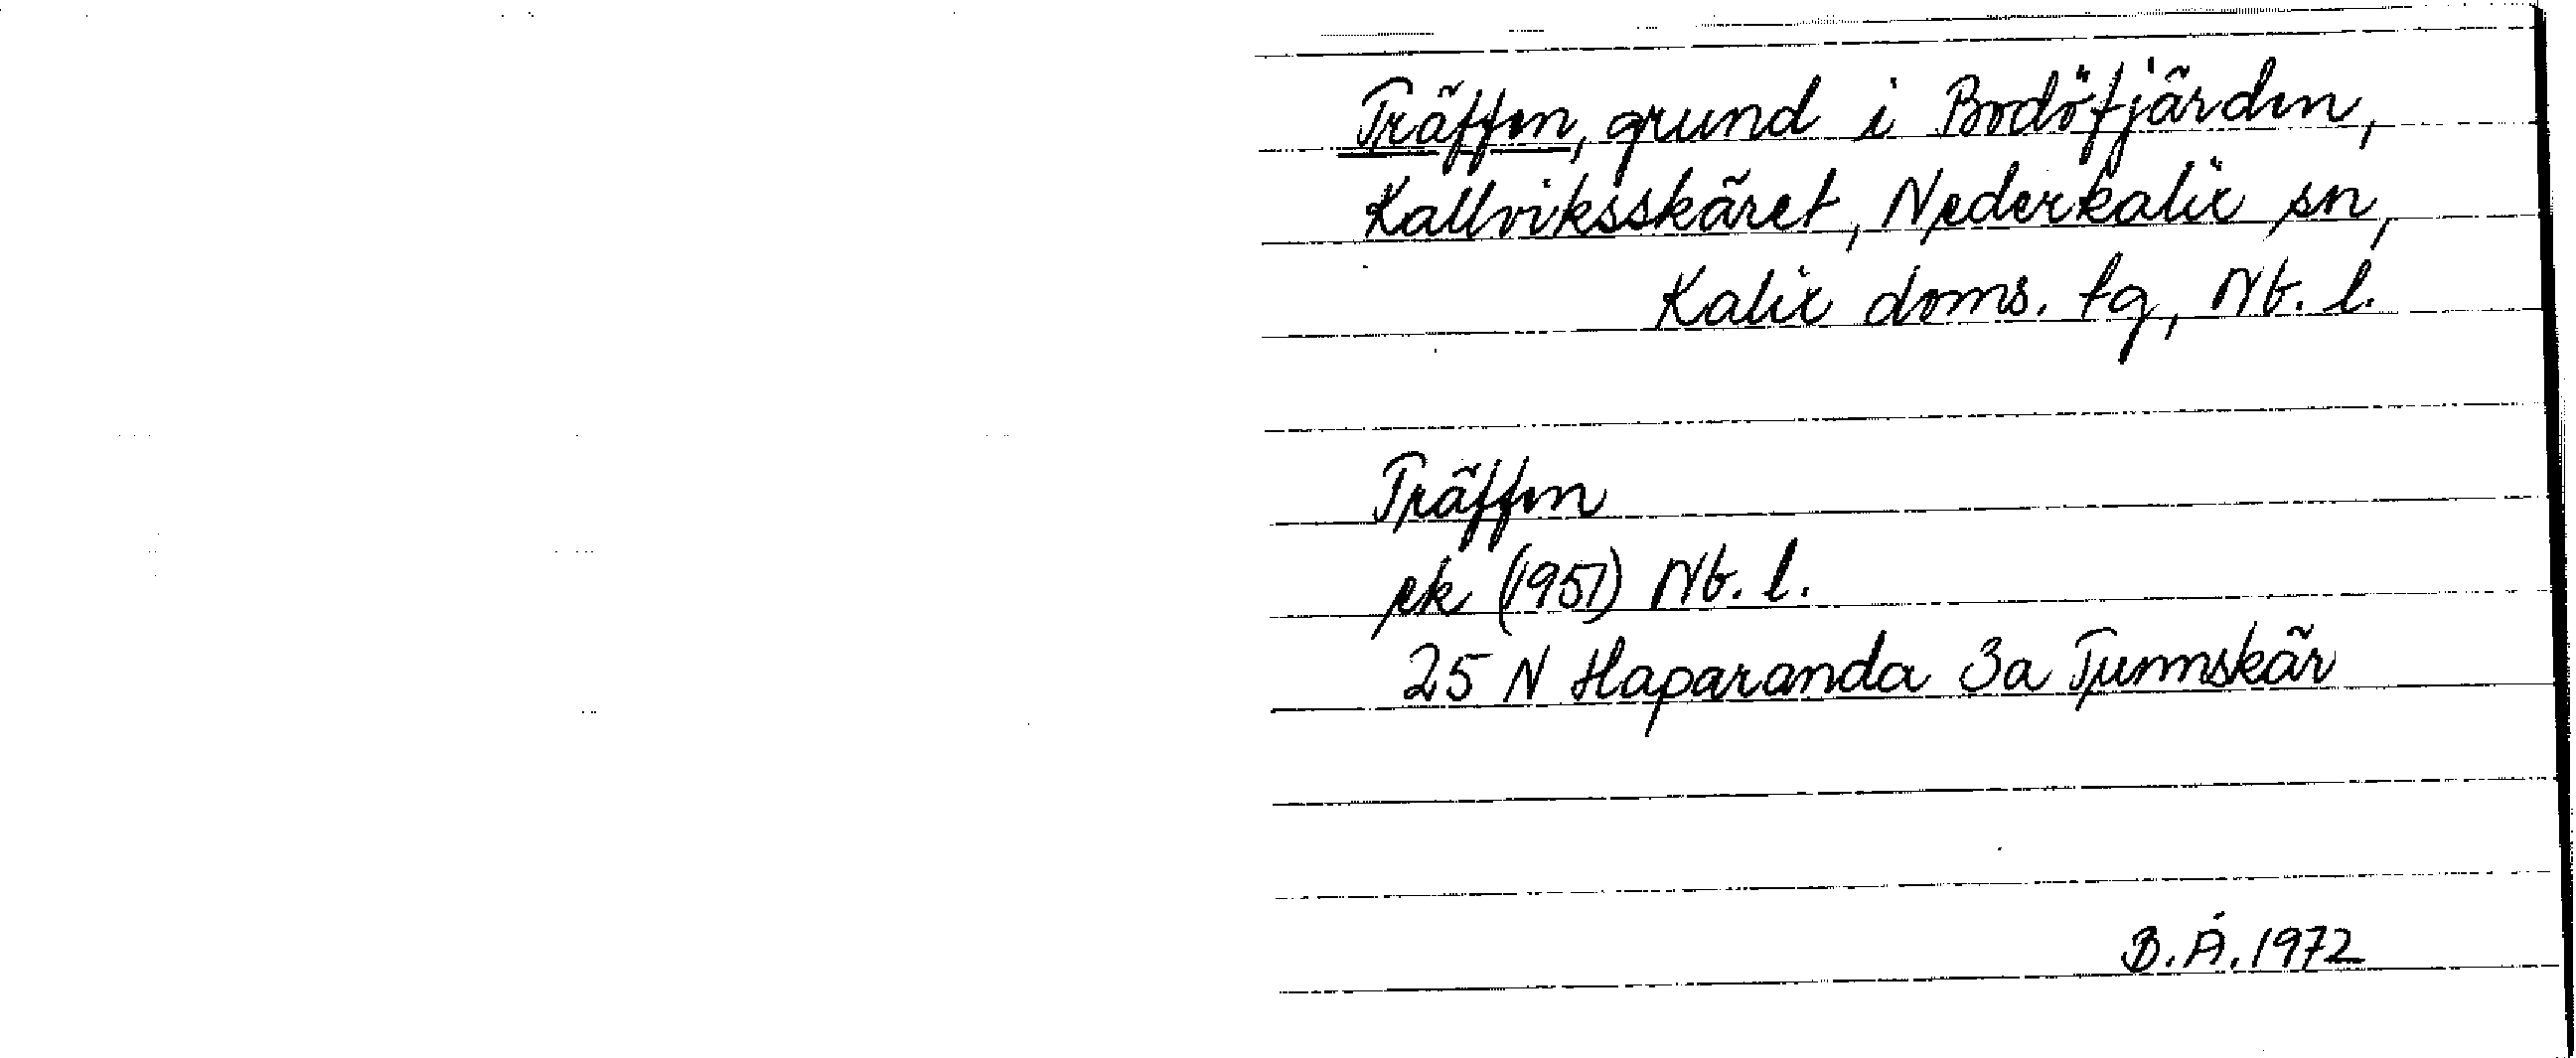 Träffen, grund i Bodöfjärden,
Kallviksskäret, Nederkalix sn,
Kalix doms. tg, Nb. l.
Träffen
ek (1951) Nb. l.
25 N Haparanda 3a Tunnskär
B.Å. 1972